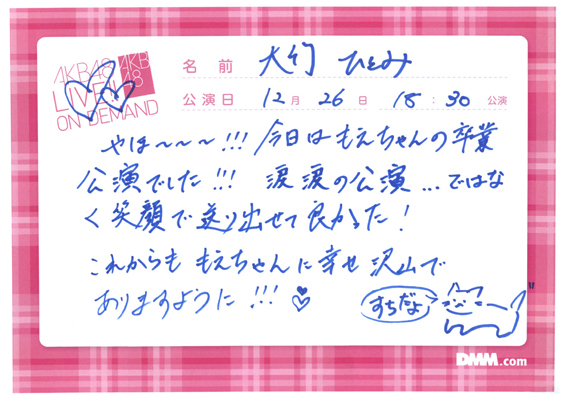 AKB48
LIVE!!
ON DEMAND
AKB
48
名前 大竹 ひとみ
公演日 12月 26日 18:30 公演
やほ〜〜〜!!! 今日はもえちゃんの卒業
公演でした!!! 涙涙の公演...ではな
く笑顔で送り出せて良かった!
これからも もえちゃんに幸せ沢山で
ありますように!!!
すちだよ
DMM.com